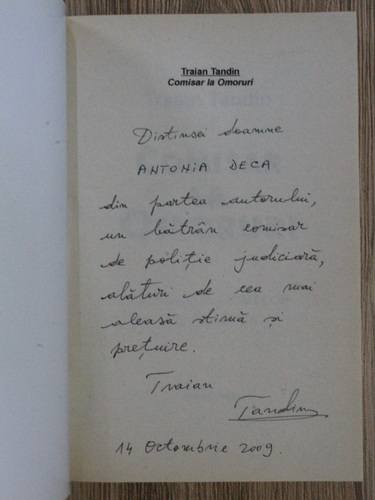 Traian Tandin
Comisar la Omoruri
Distinsei doamne
ANTONIA DECA
din partea autorului,
un bătrân comisar
de poliție judiciară,
alături de cea mai
aleasă stimă și
prețuire.
Traian
Tandin
14 Octombrie 2009.